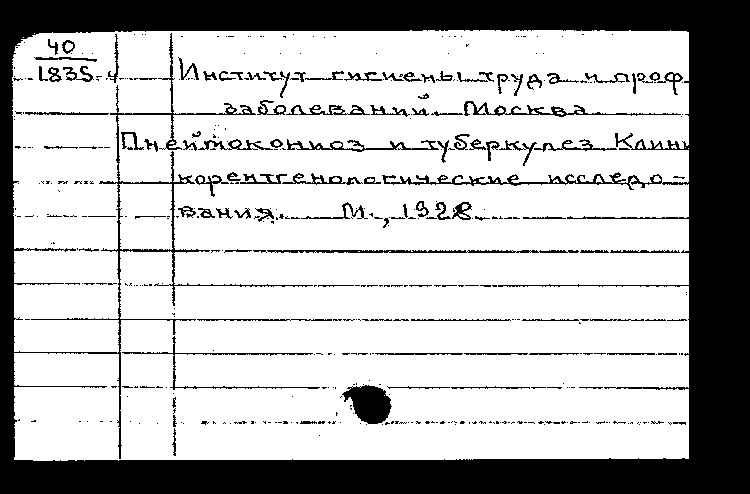 40
1835-4
Институт гигиены труда и проф
заболеваний. Москва
Пнеймокониоз и туберкулез Клини
корентгенологические исследо-
вания. М., 1928.